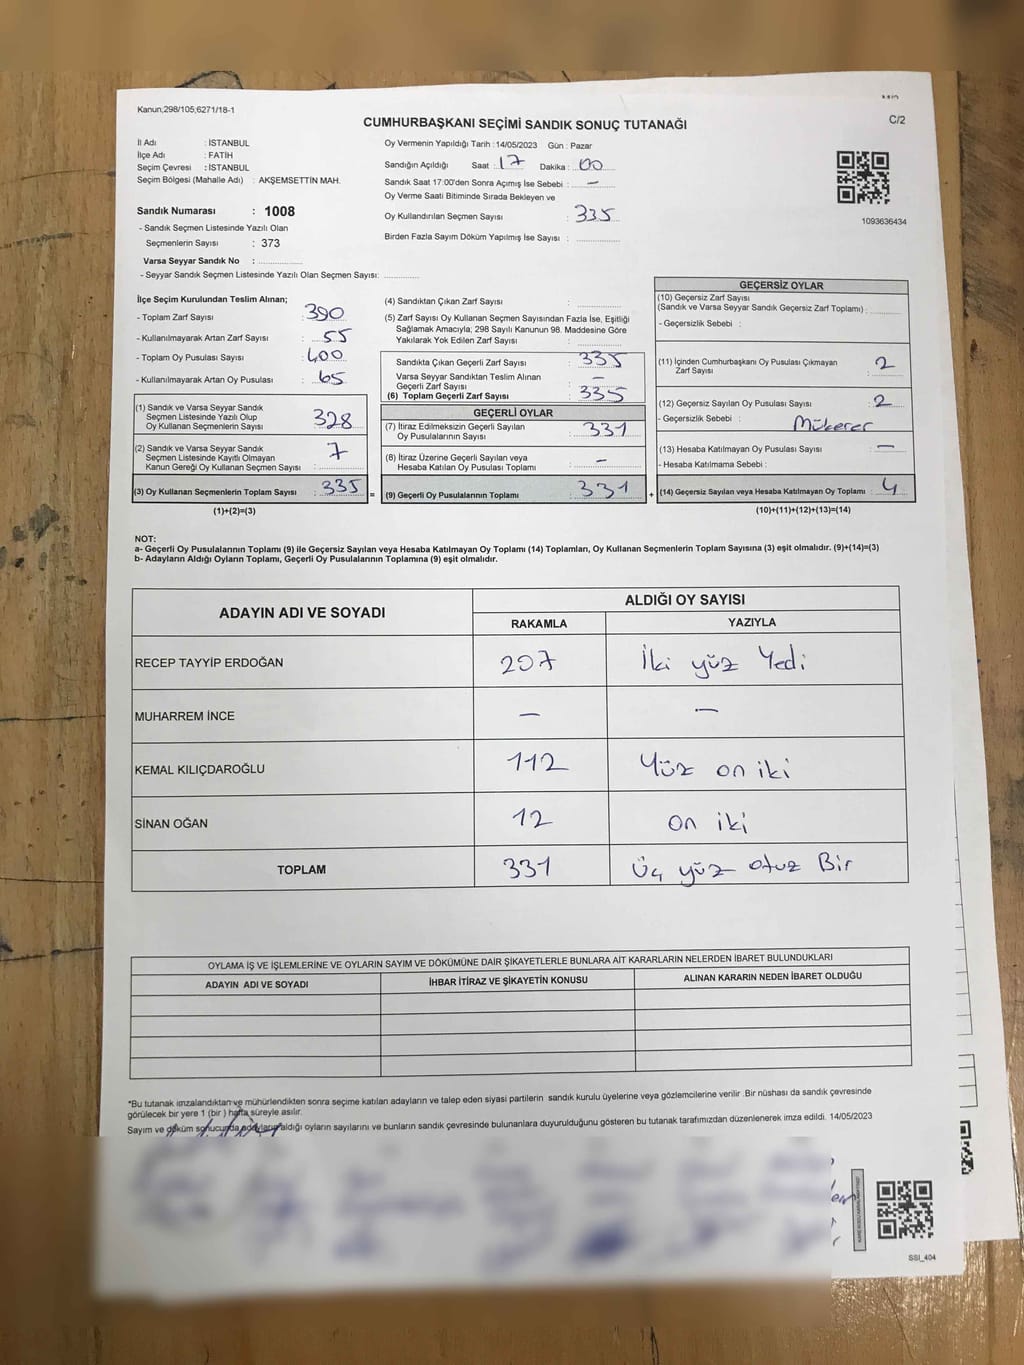 Kanun,298/105,6271/18-1
C/2
CUMHURBAŞKANI SEÇİMİ SANDIK SONUÇ TUTANAĞI
İl Adı : İSTANBUL
İlçe Adı : FATİH
Seçim Çevresi : İSTANBUL
Seçim Bölgesi (Mahalle Adı) : AKŞEMSETTİN MAH.
Sandık Numarası : 1008
- Sandık Seçmen Listesinde Yazılı Olan
Seçmenlerin Sayısı : 373
Varsa Seyyar Sandık No :
- Seyyar Sandık Seçmen Listesinde Yazılı Olan Seçmen Sayısı:
Oy Vermenin Yapıldığı Tarih : 14/05/2023 Gün : Pazar
Sandığın Açıldığı Saat : 17 Dakika : 00
Sandık Saat 17:00'den Sonra Açımış İse Sebebi : —
Oy Verme Saati Bitiminde Sırada Bekleyen ve
Oy Kullandırılan Seçmen Sayısı : 335
Birden Fazla Sayım Döküm Yapılmış İse Sayısı :
1093636434
İlçe Seçim Kurulundan Teslim Alınan;
- Toplam Zarf Sayısı : 390
- Kullanılmayarak Artan Zarf Sayısı : 55
- Toplam Oy Pusulası Sayısı : 400
- Kullanılmayarak Artan Oy Pusulası : 65
(1) Sandık ve Varsa Seyyar Sandık
Seçmen Listesinde Yazılı Olup
Oy Kullanan Seçmenlerin Sayısı : 328
(2) Sandık ve Varsa Seyyar Sandık
Seçmen Listesinde Kayıtlı Olmayan
Kanun Gereği Oy Kullanan Seçmen Sayısı : 7
(3) Oy Kullanan Seçmenlerin Toplam Sayısı : 335 =
(1)+(2)=(3)
(4) Sandıktan Çıkan Zarf Sayısı :
(5) Zarf Sayısı Oy Kullanan Seçmen Sayısından Fazla İse, Eşitliği
Sağlamak Amacıyla; 298 Sayılı Kanunun 98. Maddesine Göre
Yakılarak Yok Edilen Zarf Sayısı :
Sandıkta Çıkan Geçerli Zarf Sayısı : 335
Varsa Seyyar Sandıktan Teslim Alınan
Geçerli Zarf Sayısı : —
(6) Toplam Geçerli Zarf Sayısı : 335
GEÇERLİ OYLAR
(7) İtiraz Edilmeksizin Geçerli Sayılan
Oy Pusulalarının Sayısı : 331
(8) İtiraz Üzerine Geçerli Sayılan veya
Hesaba Katılan Oy Pusulası Toplamı : —
(9) Geçerli Oy Pusulalarının Toplamı : 331 +
GEÇERSİZ OYLAR
(10) Geçersiz Zarf Sayısı
(Sandık ve Varsa Seyyar Sandık Geçersiz Zarf Toplamı) :
- Geçersizlik Sebebi :
(11) İçinden Cumhurbaşkanı Oy Pusulası Çıkmayan
Zarf Sayısı : 2
(12) Geçersiz Sayılan Oy Pusulası Sayısı : 2
- Geçersizlik Sebebi : Mükerer
(13) Hesaba Katılmayan Oy Pusulası Sayısı : —
- Hesaba Katılmama Sebebi :
(14) Geçersiz Sayılan veya Hesaba Katılmayan Oy Toplamı : 4
(10)+(11)+(12)+(13)=(14)
NOT:
a- Geçerli Oy Pusulalarının Toplamı (9) ile Geçersiz Sayılan veya Hesaba Katılmayan Oy Toplamı (14) Toplamları, Oy Kullanan Seçmenlerin Toplam Sayısına (3) eşit olmalıdır. (9)+(14)=(3)
b- Adayların Aldığı Oyların Toplamı, Geçerli Oy Pusulalarının Toplamına (9) eşit olmalıdır.
ADAYIN ADI VE SOYADI ALDIĞI OY SAYISI
RAKAMLA YAZIYLA
RECEP TAYYİP ERDOĞAN 207 İki yüz Yedi
MUHARREM İNCE — —
KEMAL KILIÇDAROĞLU 112 Yüz on iki
SİNAN OĞAN 12 on iki
TOPLAM 331 Üç yüz otuz Bir
OYLAMA İŞ VE İŞLEMLERİNE VE OYLARIN SAYIM VE DÖKÜMÜNE DAİR ŞİKAYETLERLE BUNLARA AİT KARARLARIN NELERDEN İBARET BULUNDUKLARI
ADAYIN ADI VE SOYADI İHBAR İTİRAZ VE ŞİKAYETİN KONUSU ALINAN KARARIN NEDEN İBARET OLDUĞU
*Bu tutanak imzalandıktan ve mühürlendikten sonra seçime katılan adayların ve talep eden siyasi partilerin sandık kurulu üyelerine veya gözlemcilerine verilir .Bir nüshası da sandık çevresinde
görülecek bir yere 1 (bir ) hafta süreyle asılır.
Sayım ve döküm sonucunda adayların aldığı oyların sayılarını ve bunların sandık çevresinde bulunanlara duyurulduğunu gösteren bu tutanak tarafımızdan düzenlenerek imza edildi. 14/05/2023
SSI_404